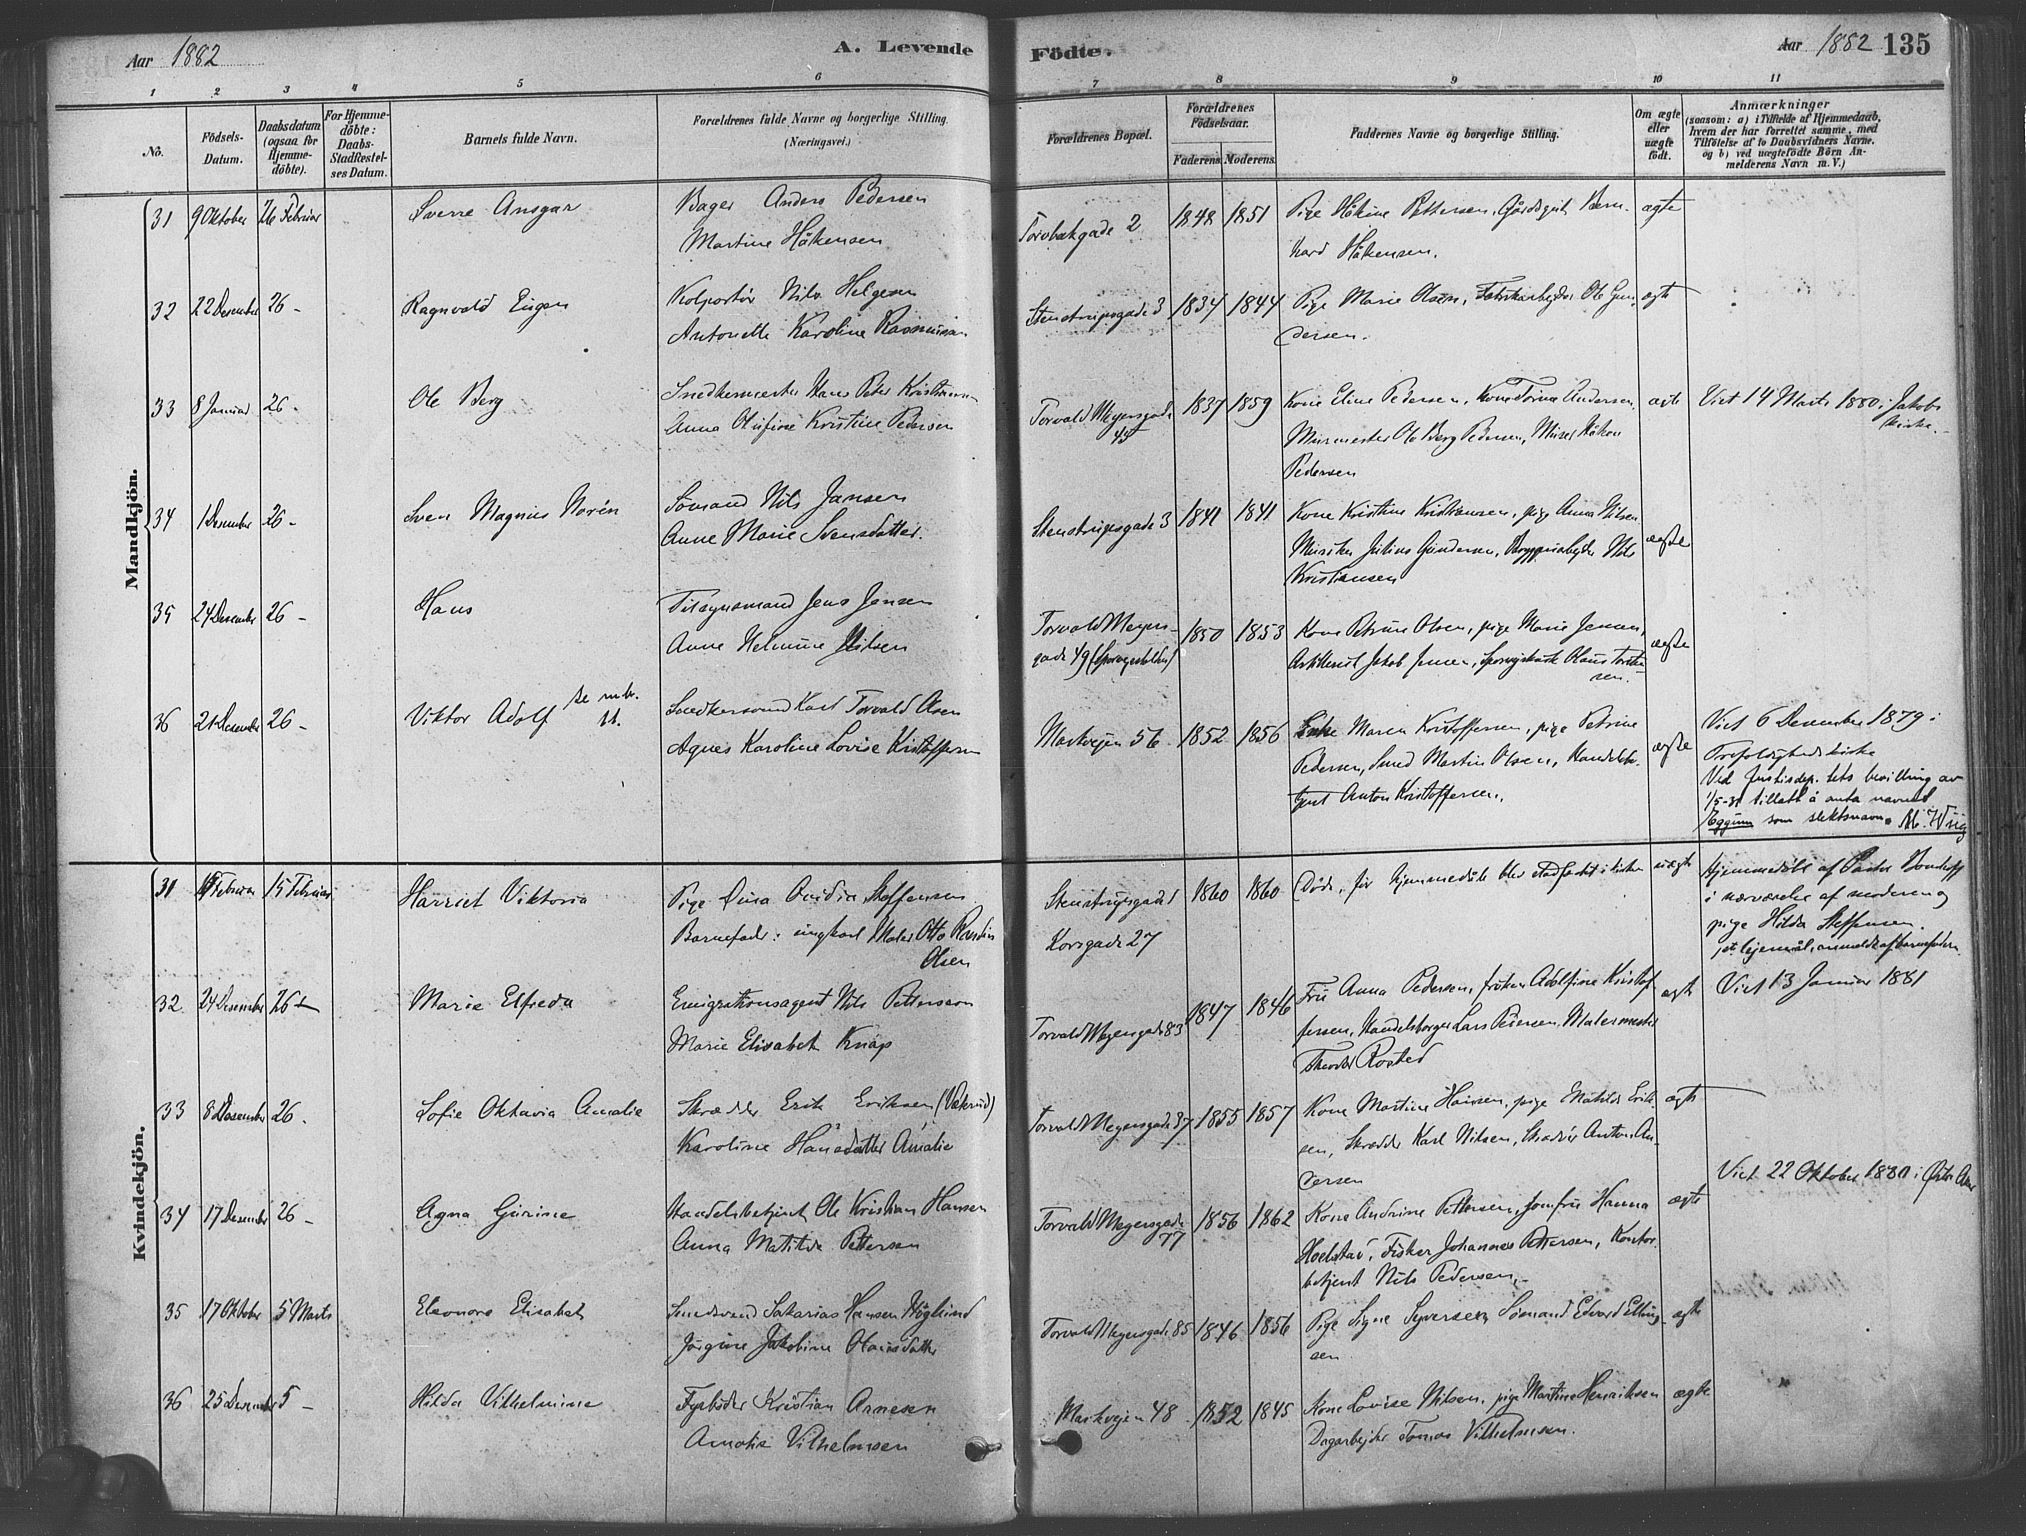 Aar 1882
A. Levende
Födte.
Aar 1882 135
1 2 3 4 5 6 7 8 9 10 11
No.
Födsels-Datum.
Daabsdatum (ogsaa for Hjemme-döbte).
For Hjemme-döbte: Daabs-Stadfæstel-ses Datum.
Barnets fulde Navn.
Forældrenes fulde Navne og borgerlige Stilling.
(Næringsvei.)
Forældrenes Bopæl.
Forældrenes Födselsaar.
Faderens. Moderens.
Faddernes Navne og borgerlige Stilling.
Om ægte eller uægte födt.
Anmærkninger
(saasom: a) i Tilfælde af Hjemmedaab, hvem der har forrettet samme, med Tilföielse af to Daabsvidners Navne. og b) ved uægtefödte Börn An-melderens Navn m. V.)
Mandkjön.
31 9 Oktober 26 Februar Sverre Ansgar Bager Anders Pedersen
Martine Håkensen
Torvbakgade 2 1848 1851 Pige Håkine Pettersen, Gårdsgut Bern-
hard Håkensen.
ægte
32 22 Desember 26 - Ragnvald Eugen Kolportør Nils Helgesen
Antonette Karoline Rasmussen
Stenstrupsgade 3 1834 1844 Pige Marie Olsen, Fabrikarbejder Ole Gun-
dersen.
ægte
33 8 Januar 26 - Ole Berg Snedkermester Hans Peter Kristiansen
Anna Olufine Kristine Pedersen
Torvald Meyersgade 45 1837 1859 Kone Eline Pedersen, Kone Andersen,
Murmester Ole Berg Pedersen, Murer Håkon
Pedersen
ægte Viet 14 Marts 1880 i Jakobs Kirke.
34 1 Desember 26 - Sven Magnus Norén Sömand Nils Jansen
Anne Marie Svensdatter.
Stenstrupsgade 3 1841 1841 Kone Kristine Kristiansen, pige Anna Nilsen
Musiker Julius Gundersen, Bryggeriarbejder Nils
Kristiansen
ægte
35 24 Desember 26 - Hans Tilsynsmand Jens Jensen
Anne Helmine Nilsen
Torvald Meyers-
gade 49 1850 1853 Kone Petrine Olsen, pige Marie Jensen,
Artillerist Jakob Jensen,
ægte
36 21 Desember 26 - Viktor Adolf se m.b. 11. Snedkersvend Karl Torvald Olsen
Agnes Karoline Lovise Kristoffersen
Markvejen 56 1852 1856 Enke Maren Kristoffersen, pige Petrine
Pedersen, Smed Martin Olsen, Handelsb-
tjent Anton Kristoffersen.
ægte Viet 6 Desember 1879 i
Trefoldighedskirke
Ved Justisdep.tets bevilling av
1/5-31 tillatt å anta navnet
Eggum som slektsnavn.
Kvindekjön.
31 Februar 15 Februar Harriet Viktoria Pige Ovidia Steffensen
Barnefader: ungkarl Maler Otto
Olsen
Stenstrupsgade 1
Korsgade 27
1860 1860 Döde, för hjemmedåb blev stadfæstet i kirken uægte Hjemmedöbt af Pastor
i nærværelse af moderen og
pige Hilda Steffensen.
1ste lejermål, anmeldt af barnefaderen
32 24 Desember 26 - Marie Elfreda Emigrationsagent Nils Petterson
Marie Elisabet Knap
Torvald Meyersgade 83 1847 1846 Fru Anna Pedersen, fröken Adolfine Kristof-
fersen, Handelsborger Lars Petersen, Malermester
Theodor Rosted
ægte Viet 13 Januar 1881
33 8 Desember 26 - Sofie Oktavia Amalie Skrædder Erik Eriksen
Karoline Hansdatter Amalie
Torvald Meyersgade 37 1855 1857 Kone Martine Hansen, pige Matilde Erik-
sen, Skrædder Karl Nilsen, Skrædder Anton An-
dersen
ægte
34 17 Desember 26 - Agna Gurine Handelsbetjent Ole Kristian Hansen
Anna Matilde Pettersen
Torvald Meyersgade 77 1856 1862 Kone Andrine Pettersen, Jomfru Hanna
Hoelstad, Fisker Johannes Pettersen, Kontor-
betjent Nils Pedersen,
ægte Viet 22 Oktober 1880 i Östre Aker
35 17 Oktober 5 Marts Eleonora Elisabet Smedsvend Sakarias Hansen Höglund
Jörgine Jakobine Olausdatter
Torvald Meyersgade 85 1846 1856 Pige Signe Syversen, Sömand Edvard Elling-
sen
ægte
36 25 Desember 5 - Hilda Vilhelmine Fyrböder Kristian Arnesen
Amalie Vilhelmsen
Markvejen 48 1852 1845 Kone Lovise Nilsen, pige Martine Henriksen
Dagarbejder Tomas Vilhelmsen.
ægte